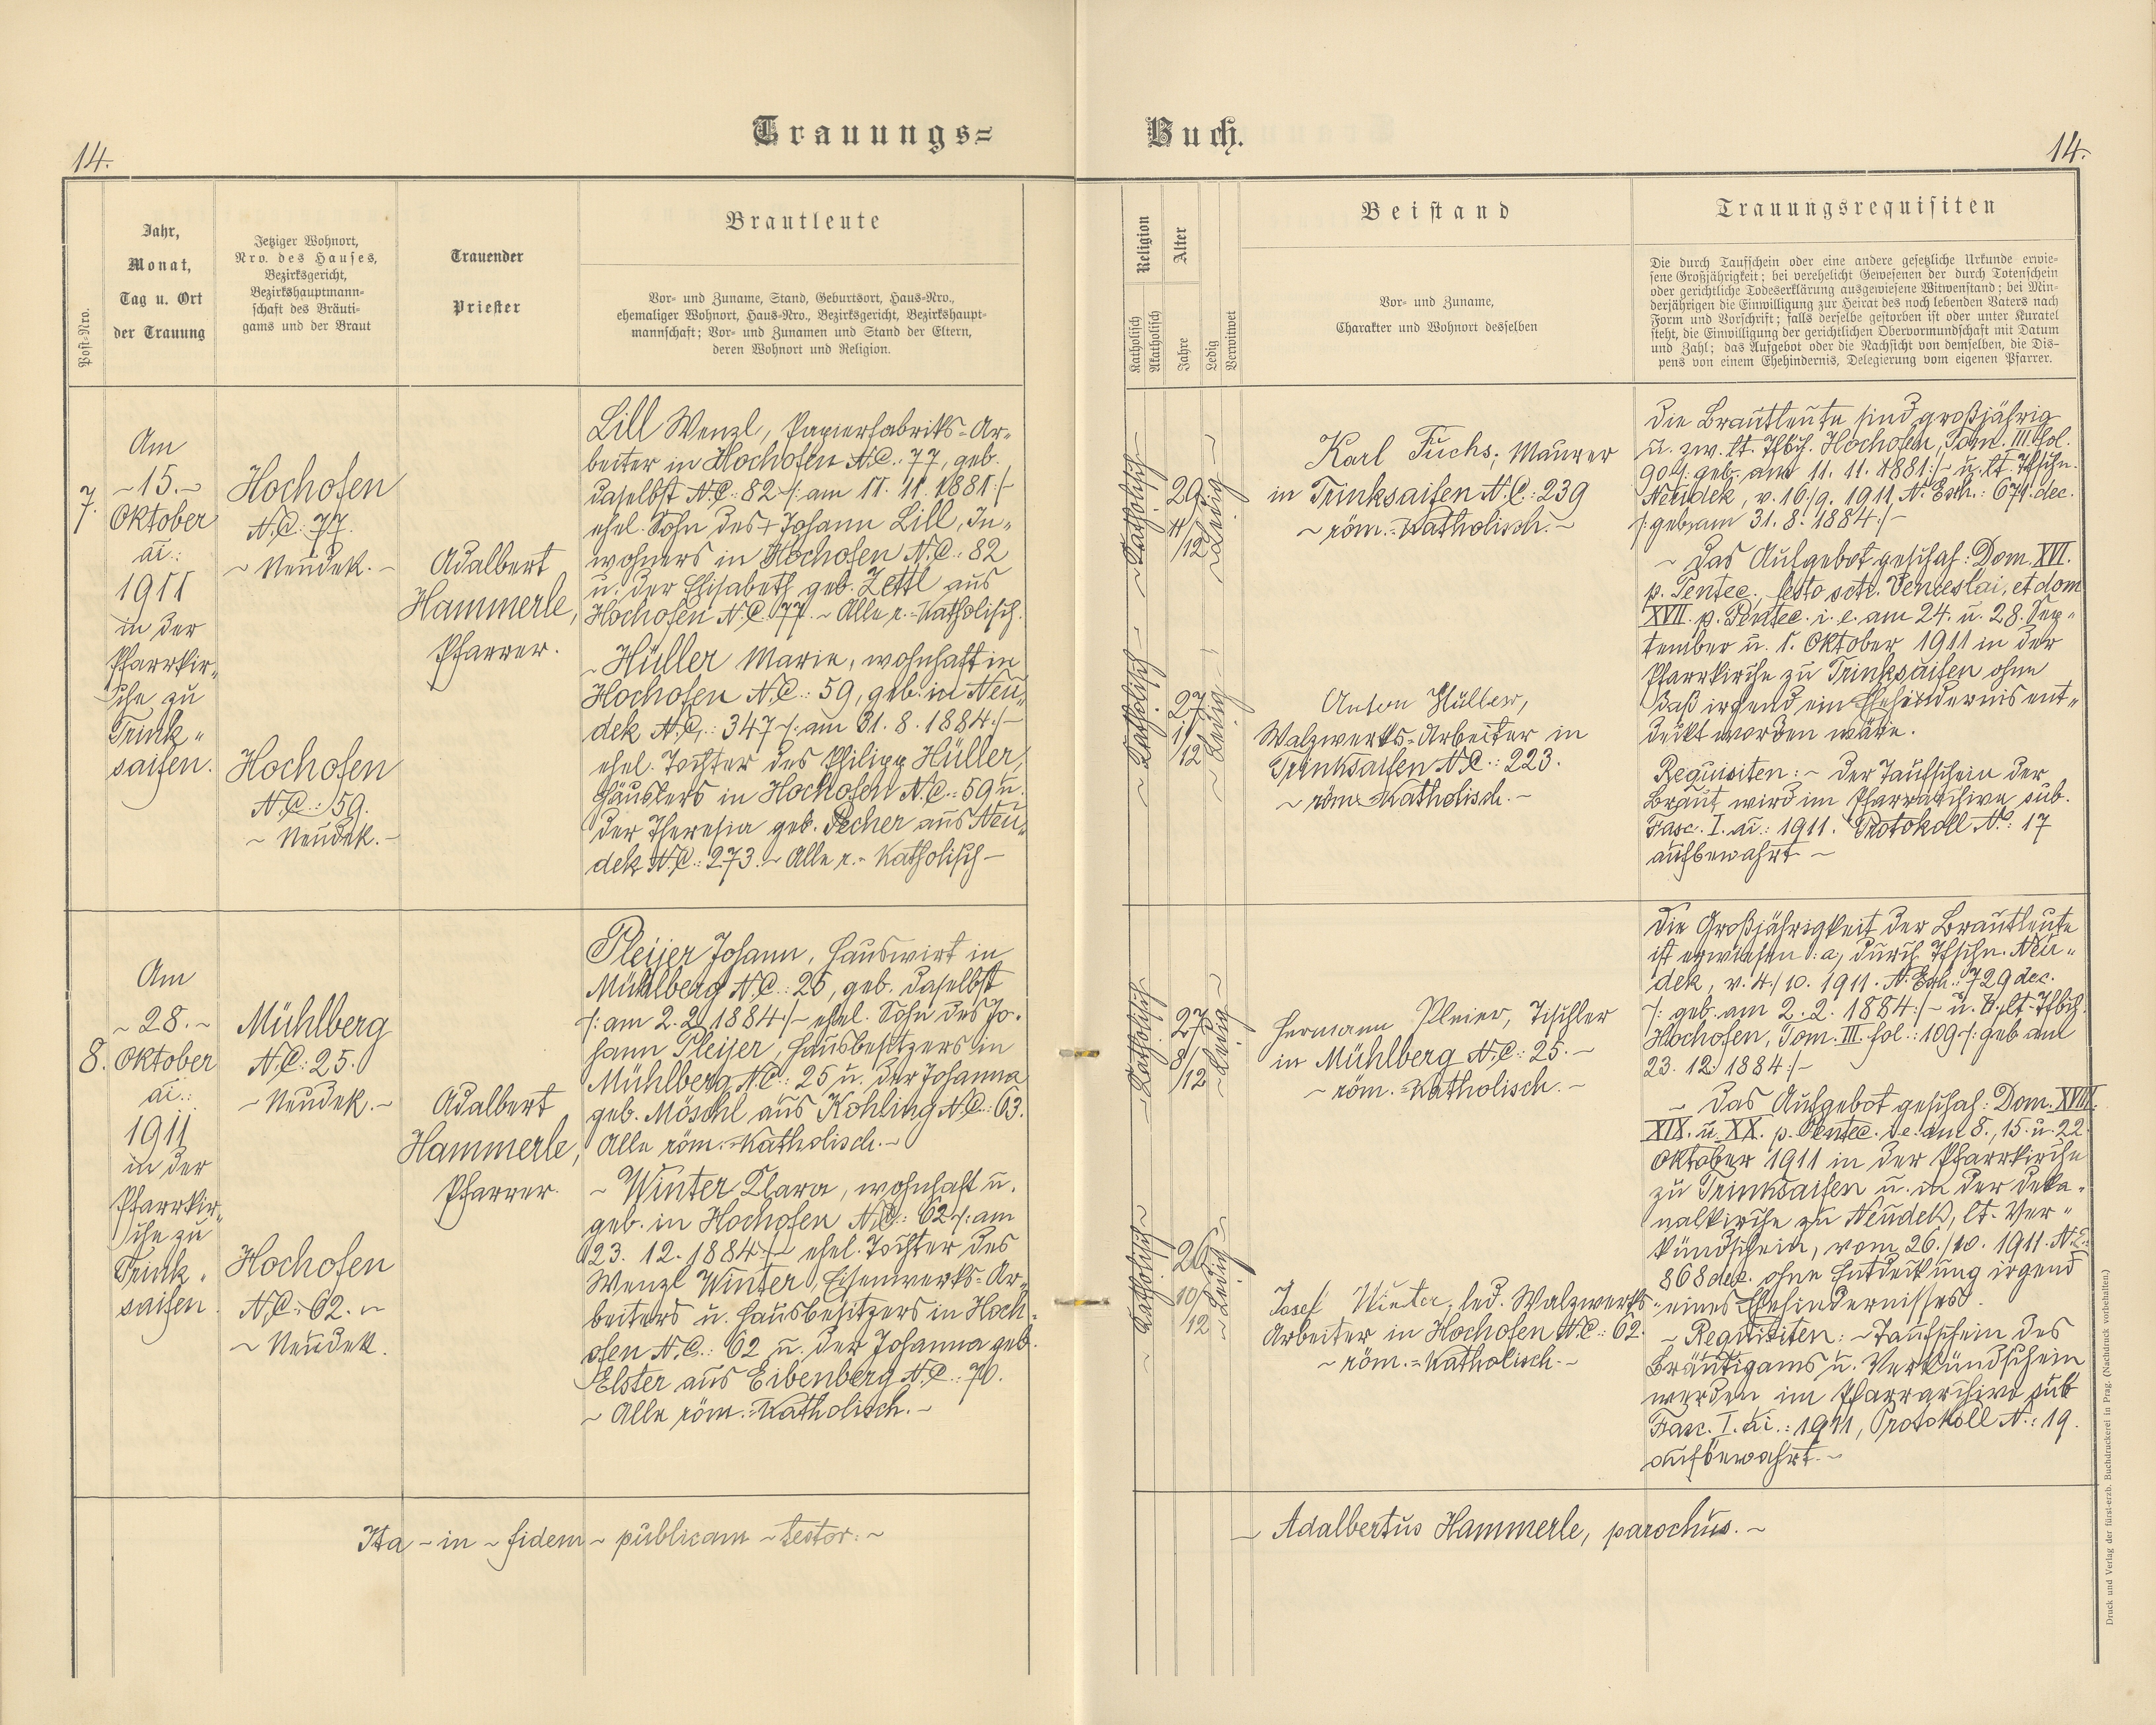 14.
Trauungs=
Buch.
14.
Post-Nro.
Jahr,
Monat,
Tag u. Ort
der Trauung
Jetziger Wohnort,
Nro. des Hauses,
Bezirksgericht,
Bezirkshauptmann-
schaft des Bräuti-
gams und der Braut
Trauender
Priester
Brautleute
Vor- und Zuname, Stand, Geburtsort, Haus-Nro.,
ehemaliger Wohnort, Haus-Nro., Bezirksgericht, Bezirkshaupt-
mannschaft; Vor- und Zunamen und Stand der Eltern,
deren Wohnort und Religion.
Religion
Katholisch
Akatholisch
Alter
Jahre
Ledig
Verwitwet
Beistand
Vor- und Zuname,
Charakter und Wohnort desselben
Trauungsrequisiten
Die durch Taufschein oder eine andere gesetzliche Urkunde erwie-
sene Großjährigkeit; bei verehelicht Gewesenen der durch Totenschein
oder gerichtliche Todeserklärung ausgewiesene Witwenstand; bei Min-
derjährigen die Einwilligung zur Heirat des noch lebenden Vaters nach
Form und Vorschrift; falls derselbe gestorben ist oder unter Kuratel
steht, die Einwilligung der gerichtlichen Obervormundschaft mit Datum
und Zahl; das Aufgebot oder die Nachsicht von demselben, die Dis-
pens von einem Ehehindernis, Delegierung vom eigenen Pfarrer.
7.
Am
~ 15. ~
Oktober
ai.:
1911
in der
Pfarrkir„
che zu
Trink„
saifen.
Hochofen
N.C.: 77.
~ Neudek. ~
Hochofen
N.C.: 59.
~ Neudek. ~
Adalbert
Hammerle,
Pfarrer.
Lill Wenzl, Papierfabriks=Ar„
beiter in Hochofen N.C.: 77, geb.
daselbst N.C.: 82 /: am 11. 11. 1881 :/
ehel. Sohn des + Johann Lill, In„
wohners in Hochofen N.C.: 82
u. der Elisabeth geb. Zettl aus
Hochofen N.C. 77. ~ Alle r.=katholisch.
~ Hüller Marie, wohnhaft in
Hochofen N.C.: 59, geb. in Neu„
dek N.C.: 347 /: am 31. 8. 1884 :/
ehel. Tochter des Philipp Hüller,
Häuslers in Hochofen N.C.: 59 u.
der Theresia geb. Pecher aus Neu„
dek N.C.: 273. ~ Alle r.=katholisch ~
~ Katholisch ~
29
11/12
~ Ledig ~
~ Katholisch ~
27
1/12
~ Ledig ~
Karl Fuchs, Maurer
in Trinksaifen N.C.: 239
~ röm.=katholisch. ~
Anton Hüller,
Walzwerks=Arbeiter in
Trinksaifen N.C.: 223.
~ röm.=katholisch. ~
Die Brautleute sind großjährig
u. zw. lt. Tfbch. Hochofen, Tom. III. fol.
90 /: geb. am 11. 11. 1881 :/ u. lt. Tfschn.
Neudek, v. 16./9. 1911 N. Exh.: 671 dec.
/: geb. am 31. 8. 1884 :/
~ Das Aufgebot geschah: Dom. XVI.
p. Pentec., festo scti. Venceslai, et dom
XVII. p. Pentec. i. e. am 24. u. 28. Sep„
tember u. 1. Oktober 1911 in der
Pfarrkirche zu Trinksaifen ohne
daß irgend ein Ehehindernis ent„
deckt worden wäre.
Requisiten: ~ Der Taufschein der
Braut wird im Pfarrarchive sub.
Fasc. I. ai.: 1911. Protokoll No: 17
aufbewahrt ~
8.
Am
~ 28. ~
Oktober
ai.:
1911
in der
Pfarrkir„
che zu
Trink„
saifen.
Mühlberg
N.C.: 25.
~ Neudek. ~
Hochofen
N.C.: 62. ~
~ Neudek.
Adalbert
Hammerle,
Pfarrer.
Pleijer Johann, Hauswirt in
Mühlberg N.C.: 25, geb. daselbst
/: am 2. 2. 1884 :/ ehel. Sohn des Jo„
hann Pleijer, Hausbesitzers in
Mühlberg N.C.: 25 u. der Johanna
geb. Möschl aus Kohling N.C.: 63.
Alle röm.=katholisch. ~
~ Winter Klara, wohnhaft u.
geb. in Hochofen N.C.: 62 /: am
23. 12. 1884 :/ ehel. Tochter des
Wenzl Winter, Eisenwerks=Ar„
beiters u. Hausbesitzers in Hoch„
ofen N.C.: 62 u. der Johanna geb.
Elster aus Eibenberg N.C.: 70.
~ Alle röm.=katholisch. ~
~ Katholisch ~
27
8/12
~ Ledig ~
~ Katholisch ~
26
10/12
~ Ledig ~
Hermann Pleier, Tischler
in Mühlberg N.C.: 25. ~
~ röm.=katholisch. ~
Josef Winter, led. Walzwerks„
Arbeiter in Hochofen N.C.: 62.
~ röm.=katholisch. ~
Die Großjährigkeit der Brautleute
ist erwiesen: a, durch Tfschn. Neu„
dek, v. 4./10. 1911. N. Exh.: 729 dec.
/: geb. am 2. 2. 1884 :/ u. b, lt. Tfbch.
Hochofen, Tom. III. fol.: 109 /: geb am
23. 12. 1884 :/
~ Das Aufgebot geschah: Dom. XVIII.
XIX. u. XX. p. Pentec. i. e. am 8., 15. u. 22.
Oktober 1911 in der Pfarrkirche
zu Trinksaifen u. in der Deka„
nalkirche zu Neudek, lt. Ver„
kündschein, vom 26./10. 1911. N.E.:
868 dec. ohne Entdeckung irgend
eines Ehehindernisses.
~ Requisiten: ~ Taufschein des
Bräutigams u. Verkündschein
werden im Pfarrarchive sub
Fasc. I. ai.: 1911, Protokoll N.: 19.
aufbewahrt. ~
Ita ~ in ~ fidem ~ publicam ~ testor: ~
~ Adalbertus Hammerle, parochus. ~
Druck und Verlag der fürst-erzb. Buchdruckerei in Prag. (Nachdruck vorbehalten.)